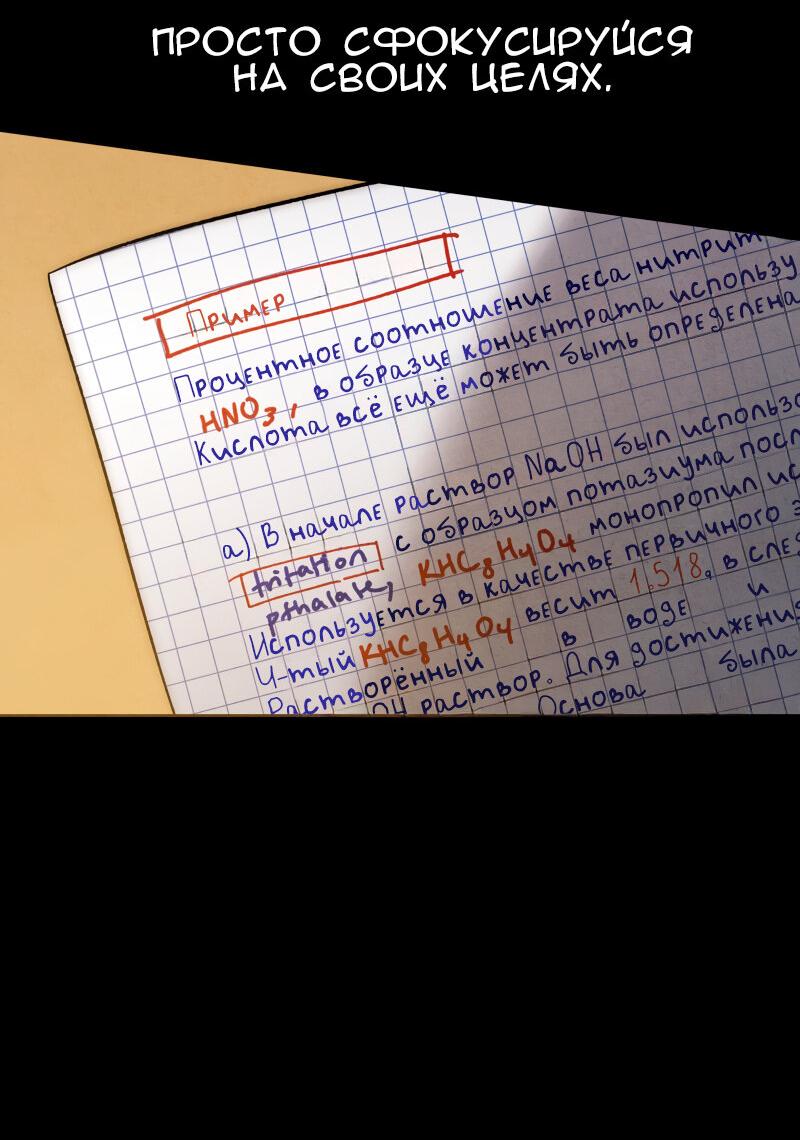 ПРОСТО СФОКУСИРУЙСЯ
НА СВОИХ ЦЕЛЯХ.
Пример
Процентное соотношение веса нитрит
HNO3, в образце концентрата использу
Кислота всё ещё может быть определена
а) В начале раствор NaOH был использо
tritation с образцом потазиума посл
pthalate, KHC8H4O4 монопропил ис
Используется в качестве первичного э
Ч-тый KHC8H4O4 весит 1.518, в сле
Растворённый в воде и
ОН раствор. Для достижения
Основа была